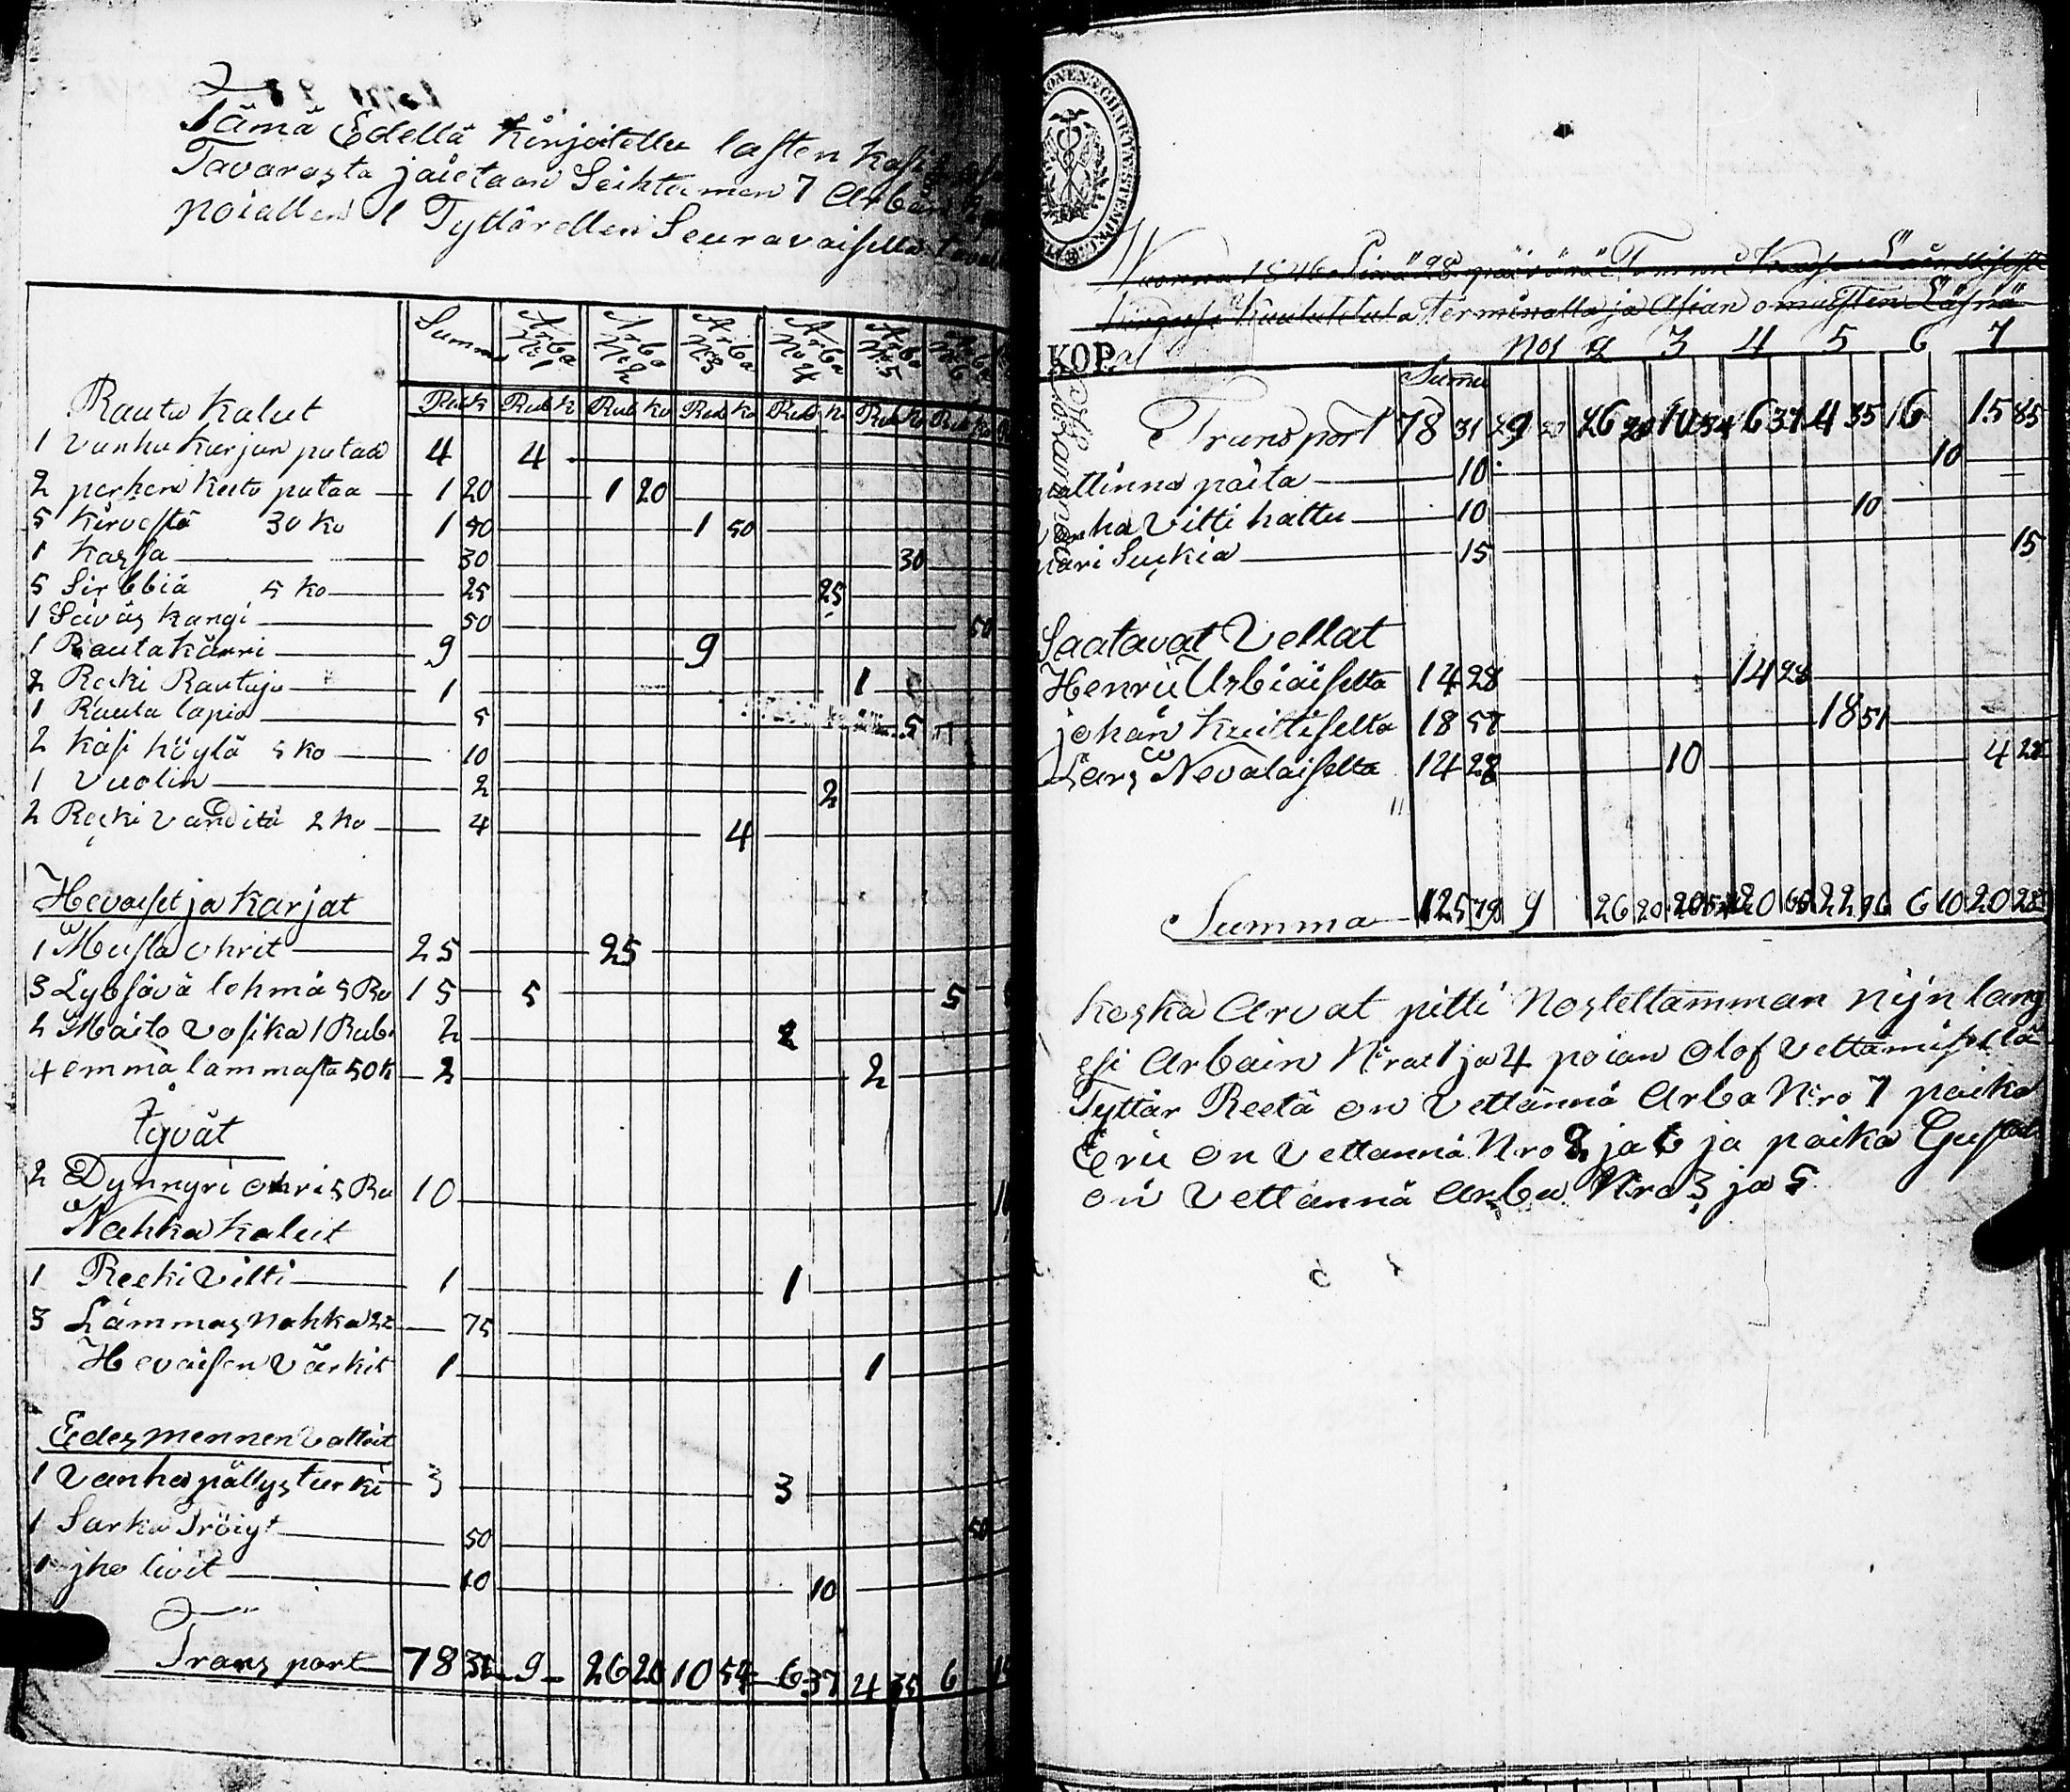 Tämä Edellä Kirjoitettu lasten
Tavarasta jaietaan Seihtemen 7 Arbään
poiallen 1 Tyttärellen Seuravaisella
Summa Arba No 1 Arba No 2 Arba No 3 Arba No 4 Arba No 5 No 6
Rauta Kalut Rub k Rub k Rub ko Rub ko Rub k Rub ko Rub
1 vanha Karjan pataa 4 4
2 perhen keito pataa 1 20 1 20
5 Kirvestä 30 Ko 1 50 1 50
1 Kassa 30 30
5 Sirbbiä 5 Ko 25 25
1 Seiväs kangi 50 50
1 Rauta Kärri 9 9
2 Reeki Rautaja 1 1
1 Rauta lapio 5 5
2 Käsi höylä 5 Ko 10
1 Vuolin 2 2
2 Reeki Vanditä 2 ko 4 4
Hevaiset ja Karjat
1 Musta ohrit 25 25
3 Lybsävä lehmä 5 Ru 15 5 5
2 Maito Vasika 1 Rub 2 2
4 emmä lammasta 50 k 2 2
Jyvät
2 Dynnyri ohri 5 Ru 10
Nahka kalut
1 Reeki Vilti 1 1
3 Lammas Nahka 75
Hevaisen Värkit 1 1
Edesmennen Vatteit
1 Vanha pällysturki 3 3
1 Sarka Tröiyt 50 50
1 jho livit 10 10
Transport 78 31 9 26 20 10 54 6 37 4 35 6
KOP.
Vuonna 1846 Sinä 28 päivänä
Kuulutetula Terminalla ja Asian omasten Läsnä
No 1 2 3 4 5 6 7
Suma
Transport 78 31 9 26 20 10 54 6 37 4 35 6 15 85
päita 10 10
Vanha Vilti hattu 10 10
pari Sukia 15 15
Saatavat Vellat
Henrii Urbiäiselta 14 28 14 28
johan Kuittiselta 18 51 18 51
Lars Nevalaiselta 14 28 10 4 28
Summa 125 78 9 26 20 20 54 20 65 22 96 6 10 20 28
koska Arvat pitti Nostettamman nijn lang
esi Arbain Nrot 1 ja 4 poian Olof Vettämisellä
Tyttär Reetä on Vettännä Arba Nro 7 poika
Erii on Vettannä Nro 2 ja 6 ja poika Gustav
on Vettännä Arba Nro 3 ja 5